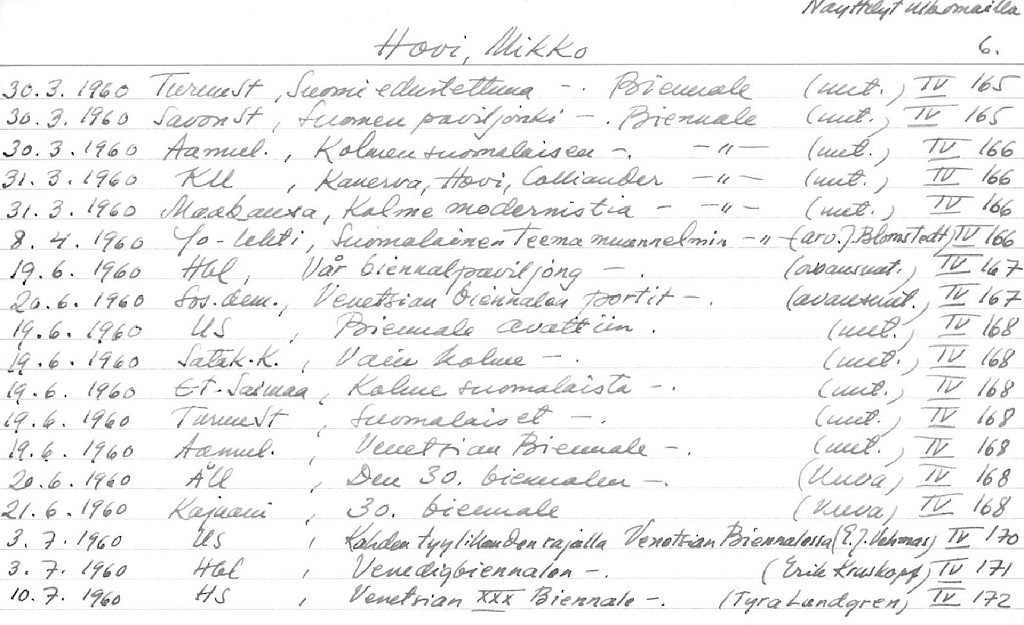 Näyttelyt ulkomailla
Hovi, Mikko 6.
30.3.1960 TurunSt , Suomi edustettuna - . Biennale (uut.) IV 165
30.3.1960 SavonSt , Suomen paviljonki - . Biennale (uut.) IV 165
30.3.1960 Aamul. , Kolmen suomalaisen - . -"- (uut.) IV 166
31.3.1960 KU , Kanerva, Hovi, Colliander -"- (uut.) IV 166
31.3.1960 Maakansa, Kolme modernistia - -"- (uut.) IV 166
8.4.1960 Yo-lehti, Suomalainen Teema muunnelmin -"- (arv. J. Blomstedt) IV 166
19.6.1960 Hbl , Vår biennalpaviljong - . (avausuut.) IV 167
20.6.1960 Sos.dem., Venetsian biennalen portit - . (avausuut.) IV 167
19.6.1960 US , Biennale avattiin . (uut.) IV 168
19.6.1960 Satak.K. , Vain kolme - . (uut.) IV 168
19.6.1960 Et-Saimaa , Kolme suomalaista - . (uut.) IV 168
19.6.1960 TurunSt , Suomalaiset - . (uut.) IV 168
19.6.1960 Aamul. , Venetsian Biennale - . (uut.) IV 168
20.6.1960 ÅU , Den 30. biennalen - . (kuva) IV 168
21.6.1960 Kajaani , 30. biennale (kuva) IV 168
3.7.1960 US , Kahden tyylikauden rajalla Venetsian Biennalessa (E.J. Vehmas) IV 170
3.7.1960 Hbl , Venedigbiennalen - . (Erik Kruskopf) IV 171
10.7.1960 HS , Venetsian XXX Biennale - . (Tyra Lundgren) IV 172